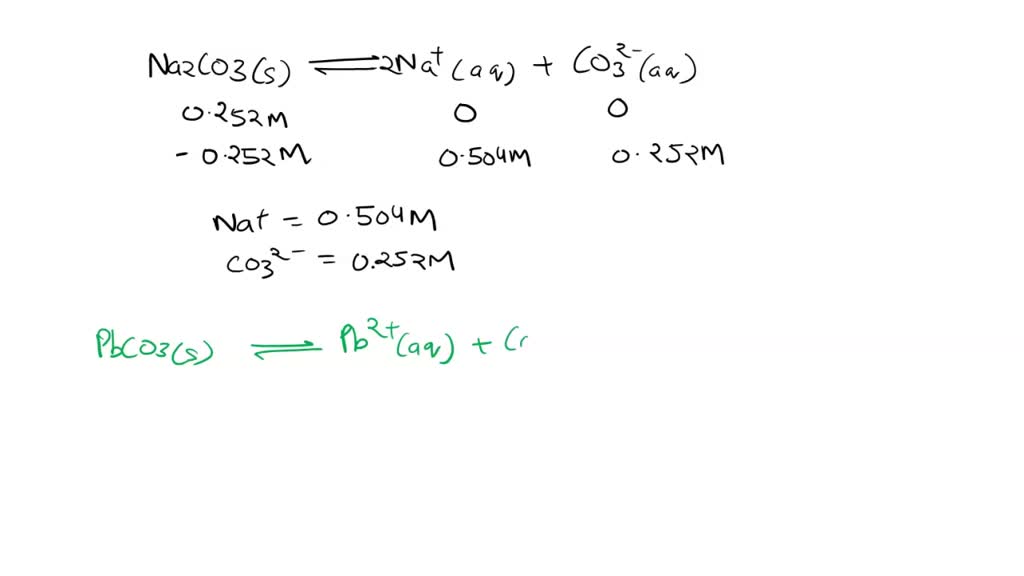 Na2CO3(s) ⇌ 2Na⁺(aq) + CO3²⁻(aq)
0.252M 0 0
- 0.252M 0.504M 0.252M
Na⁺ = 0.504M
CO3²⁻ = 0.252M
PbCO3(s) ⇌ Pb²⁺(aq) + C